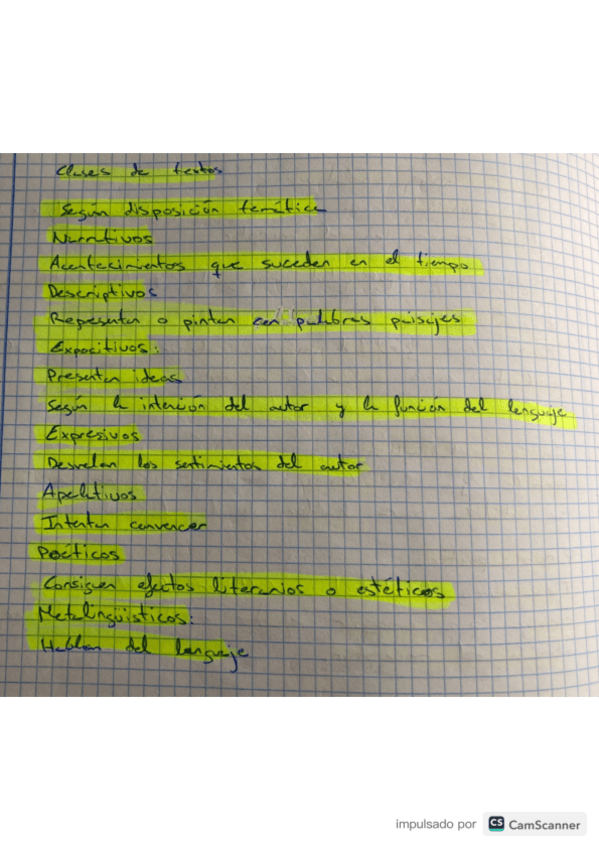 Clases de textos
Según disposición temática
Narrativos
Acontecimientos que suceden en el tiempo
Descriptivos
Representan o pintan con palabras paisajes
Expositivos:
Presentan ideas
Según la intención del autor y la función del lenguaje
Expresivos
Desvelan los sentimientos del autor
Apelativos
Intentan convencer
Poéticos
Consiguen efectos literarios o estéticos
Metalingüísticos:
Hablan del lenguaje
impulsado por CS CamScanner